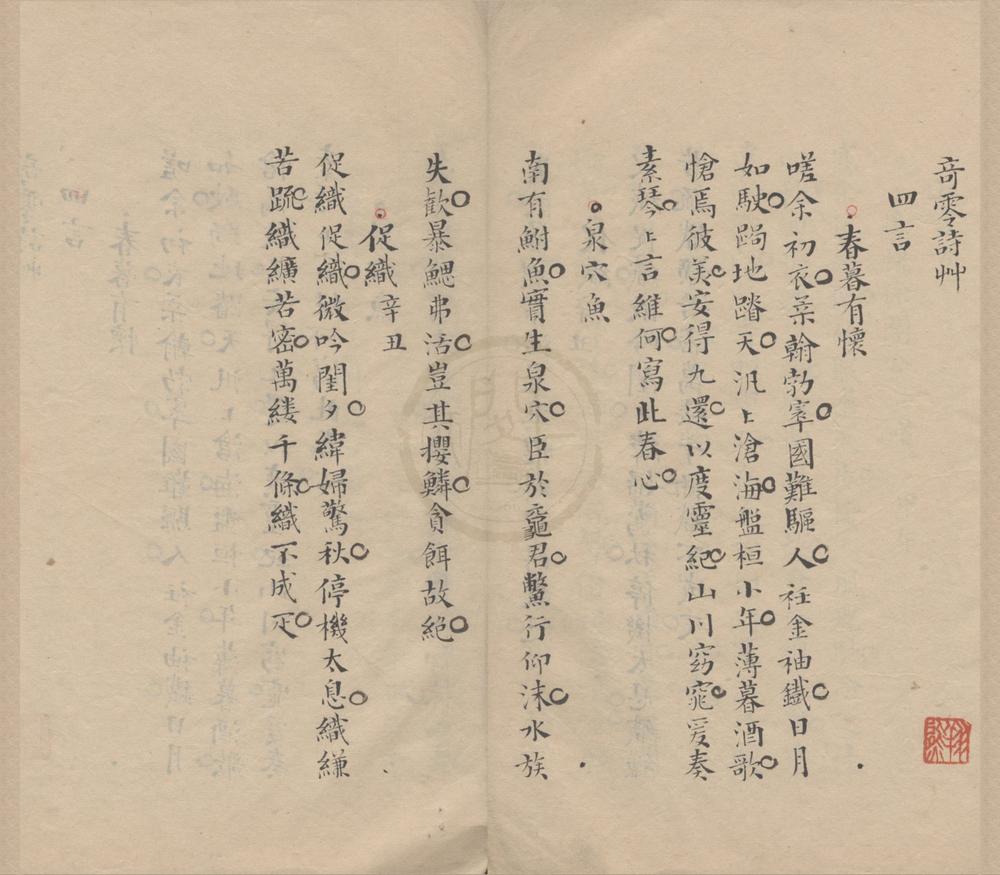 奇零詩艸
四言
春暮有懷
嗟余初衣柔翰勃窣國難驅人袵金袖鐵日月
如駛跼地踏天汎〻滄海盤桓小年薄暮酒歌
愴焉彼美安得九還以度靈紀山川窈窕爰奏
素琴〻言維何寫此春心
泉穴魚
南有鮒魚實生泉穴臣於龜君鱉行仰沫水族
失歡暴鰓弗活豈其攖鱗貪餌故絕
促織辛丑
促織促織微吟閨夕緯婦驚秋停機太息織縑
苦踈織纊苦密萬縷千條織不成疋